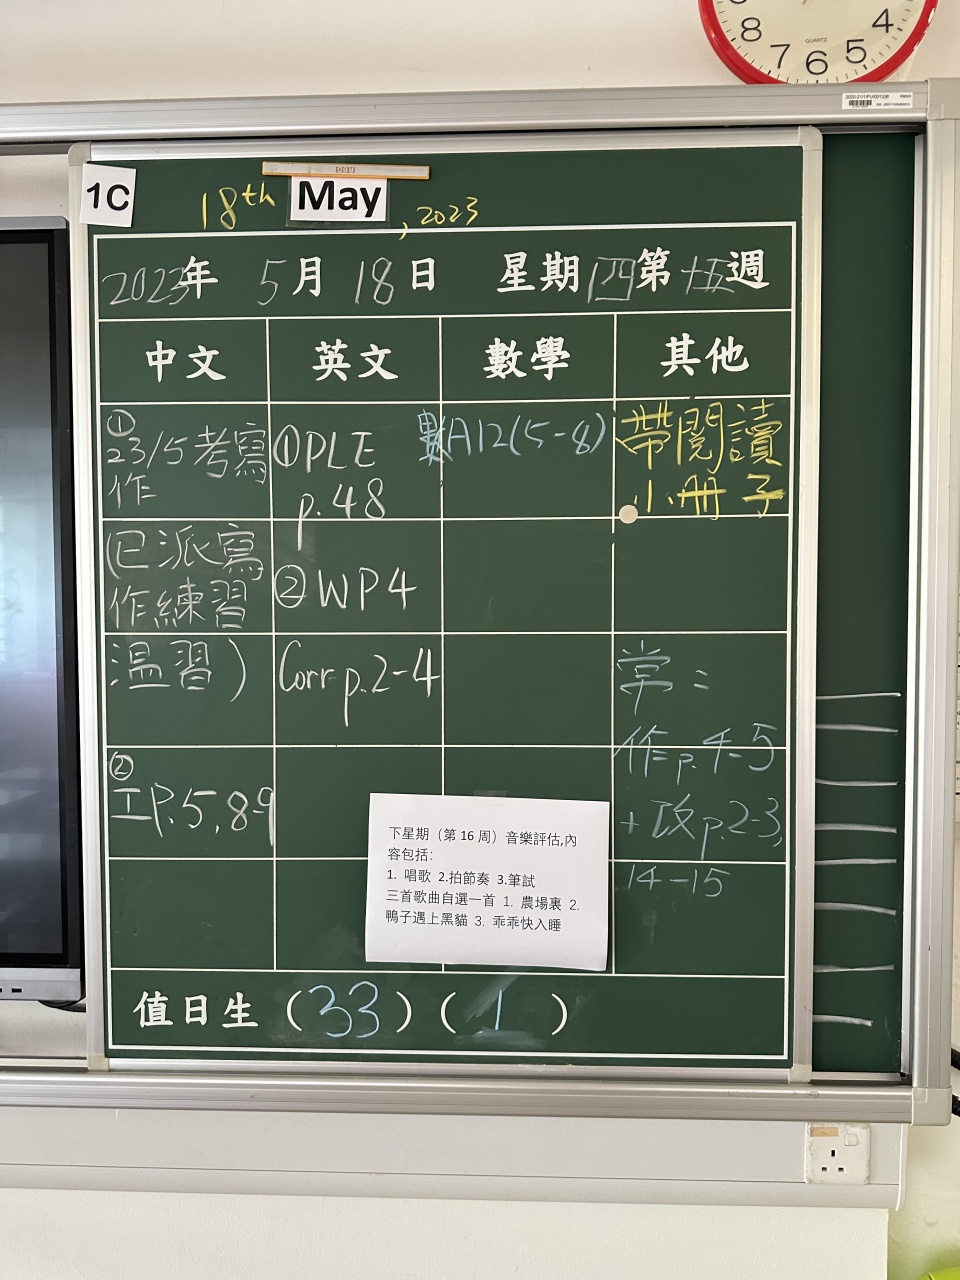 8 7 6 5 4
QUARTZ
1C
18th May, 2023
2023年 5月 18日 星期四第十五週
中文 英文 數學 其他
①
23/5考寫
作
(已派寫
作練習
溫習)
②
工P.5,8-9
①PLE
p.48
②WP4
Corr p.2-4
數A12(5-8)
帶閱讀
小冊子
常:
作p.4-5
+改p.2-3,
14-15
下星期（第 16 周）音樂評估,內
容包括：
1. 唱歌 2.拍節奏 3.筆試
三首歌曲自選一首 1. 農場裏 2.
鴨子遇上黑貓 3. 乖乖快入睡
值日生（33）（1）